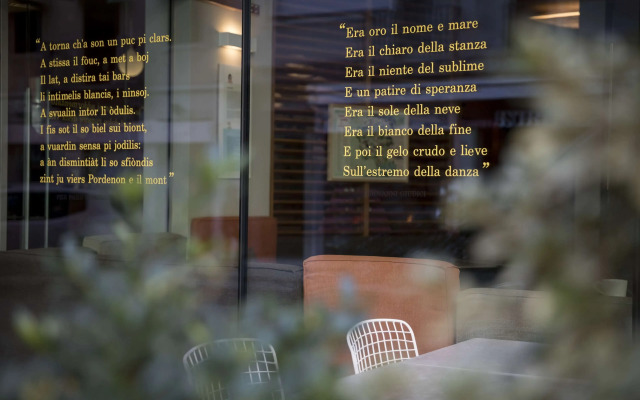 “A torna ch'a son un puc pi clars.
A stissa il fôuc, a met a boj
Il lat, a distira tai bars
li intimelis blancis, i ninsoj.
A svualin intor li òdulis.
I fis sot il so biel sui biont,
a vuardin sensa pi jodilis:
a àn dismintiàt li so sfiòndis
zint ju viers Pordenon e il mont”
“Era oro il nome e mare
Era il chiaro della stanza
Era il niente del sublime
E un patire di speranza
Era il sole della neve
Era il bianco della fine
E poi il gelo crudo e lieve
Sull'estremo della danza”